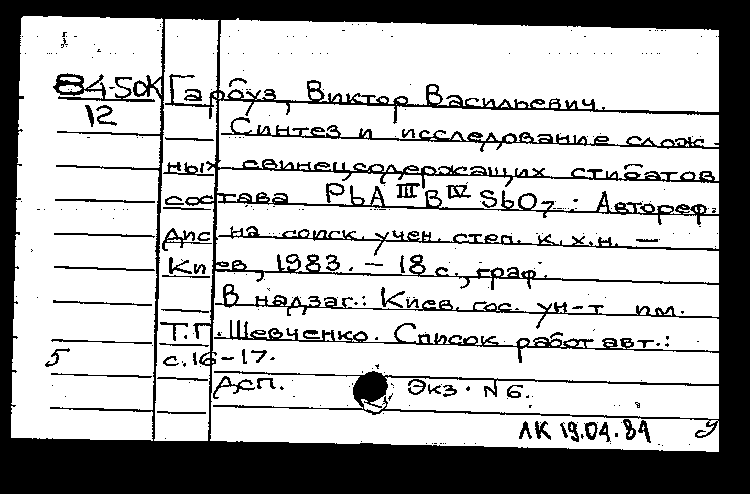 84-50К Гарбуз, Виктор Васильевич.
12 Синтез и исследование слож-
ных свинецсодержащих стибатов
состава PbA III B IV SbO7 : Автореф.
дис на соиск. учен. степ. к. х. н. —
Киев, 1983. – 18 с., граф.
В надзаг.: Киев. гос. ун-т им.
Т.Г. Шевченко. Список работ авт.:
5 с. 16-17.
ДСП. Экз. N 6.
ЛК 19.04.84 У